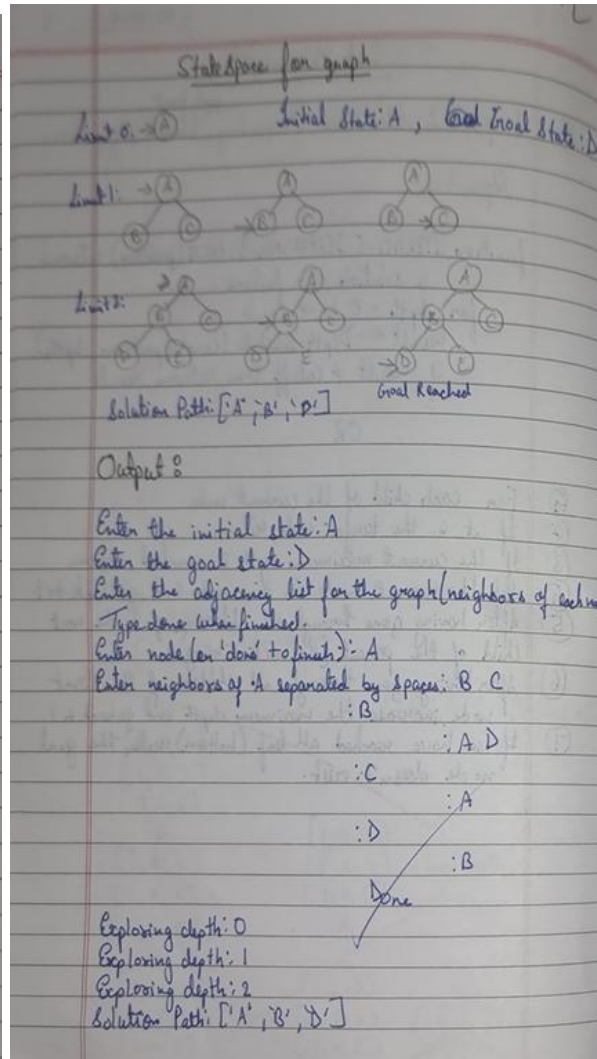 State Space for graph
Limit 0: → A Initial State: A , Goal State: D
Limit 1: → A A A
B C → B C B → C
Limit 2: → A A A
B C → B C B C
D E D E → D E
Solution Path: ['A', 'B', 'D'] Goal Reached
Output :
Enter the initial state: A
Enter the goal state: D
Enter the adjacency list for the graph (neighbors of each
Type done when finished.
Enter node (or 'done' to finish): A
Enter neighbors of A separated by spaces: B C
: B
: A D
: C
: A
: D
: B
Done
Exploring depth: 0
Exploring depth: 1
Exploring depth: 2
Solution Path: ['A', 'B', 'D']